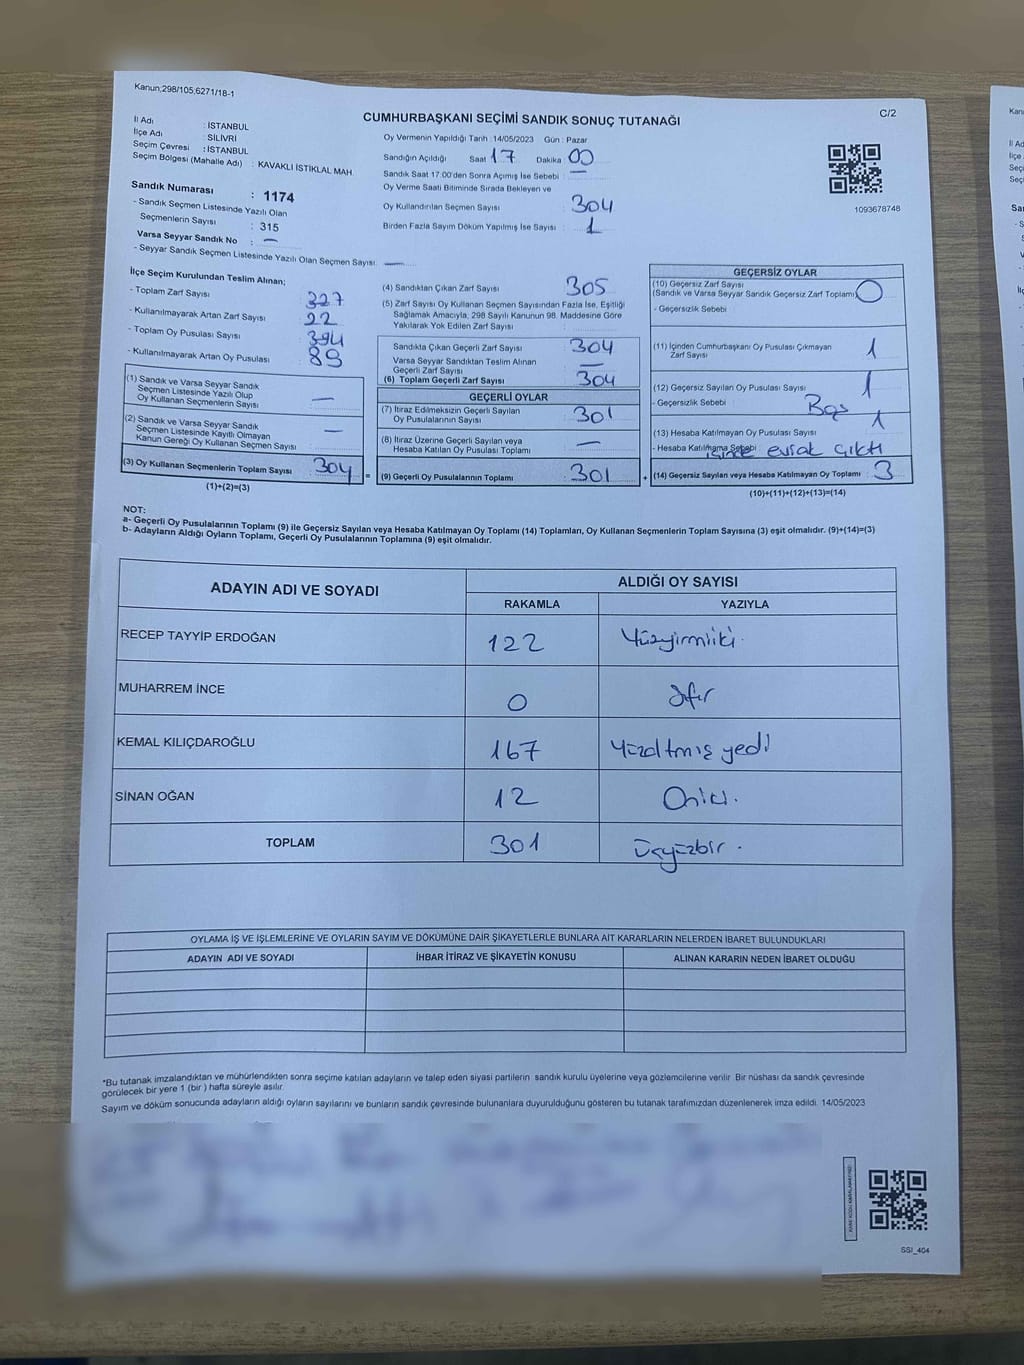 Kanun;298/105,6271/18-1
C/2
CUMHURBAŞKANI SEÇİMİ SANDIK SONUÇ TUTANAĞI
İl Adı : İSTANBUL
İlçe Adı : SİLİVRİ
Seçim Çevresi : İSTANBUL
Seçim Bölgesi (Mahalle Adı) : KAVAKLI İSTİKLAL MAH.
Sandık Numarası : 1174
- Sandık Seçmen Listesinde Yazılı Olan
Seçmenlerin Sayısı : 315
Varsa Seyyar Sandık No : —
- Seyyar Sandık Seçmen Listesinde Yazılı Olan Seçmen Sayısı: —
Oy Vermenin Yapıldığı Tarih :14/05/2023 Gün : Pazar
Sandığın Açıldığı Saat 17 Dakika 00
Sandık Saat 17:00'den Sonra Açımış İse Sebebi : —
Oy Verme Saati Bitiminde Sırada Bekleyen ve
Oy Kullandırılan Seçmen Sayısı : 304
Birden Fazla Sayım Döküm Yapılmış İse Sayısı : 1
1093678748
İlçe Seçim Kurulundan Teslim Alınan;
- Toplam Zarf Sayısı : 327
- Kullanılmayarak Artan Zarf Sayısı : 22
- Toplam Oy Pusulası Sayısı : 394
- Kullanılmayarak Artan Oy Pusulası : 89
(1) Sandık ve Varsa Seyyar Sandık
Seçmen Listesinde Yazılı Olup
Oy Kullanan Seçmenlerin Sayısı : —
(2) Sandık ve Varsa Seyyar Sandık
Seçmen Listesinde Kayıtlı Olmayan
Kanun Gereği Oy Kullanan Seçmen Sayısı : —
(3) Oy Kullanan Seçmenlerin Toplam Sayısı : 304
(1)+(2)=(3)
(4) Sandıktan Çıkan Zarf Sayısı : 305
(5) Zarf Sayısı Oy Kullanan Seçmen Sayısından Fazla İse, Eşitliği
Sağlamak Amacıyla, 298 Sayılı Kanunun 98. Maddesine Göre
Yakılarak Yok Edilen Zarf Sayısı :
Sandıkta Çıkan Geçerli Zarf Sayısı : 304
Varsa Seyyar Sandıktan Teslim Alınan
Geçerli Zarf Sayısı : —
(6) Toplam Geçerli Zarf Sayısı : 304
GEÇERLİ OYLAR
(7) İtiraz Edilmeksizin Geçerli Sayılan
Oy Pusulalarının Sayısı : 301
(8) İtiraz Üzerine Geçerli Sayılan veya
Hesaba Katılan Oy Pusulası Toplamı : —
= (9) Geçerli Oy Pusulalarının Toplamı : 301
GEÇERSİZ OYLAR
(10) Geçersiz Zarf Sayısı
(Sandık ve Varsa Seyyar Sandık Geçersiz Zarf Toplamı) : 0
- Geçersizlik Sebebi :
(11) İçinden Cumhurbaşkanı Oy Pusulası Çıkmayan
Zarf Sayısı : 1
(12) Geçersiz Sayılan Oy Pusulası Sayısı : 1
- Geçersizlik Sebebi : Boş
(13) Hesaba Katılmayan Oy Pusulası Sayısı : 1
- Hesaba Katılmama Sebebi : içinde evrak çıktı
+ (14) Geçersiz Sayılan veya Hesaba Katılmayan Oy Toplamı : 3
(10)+(11)+(12)+(13)=(14)
NOT:
a- Geçerli Oy Pusulalarının Toplamı (9) ile Geçersiz Sayılan veya Hesaba Katılmayan Oy Toplamı (14) Toplamları, Oy Kullanan Seçmenlerin Toplam Sayısına (3) eşit olmalıdır. (9)+(14)=(3)
b- Adayların Aldığı Oyların Toplamı, Geçerli Oy Pusulalarının Toplamına (9) eşit olmalıdır.
ADAYIN ADI VE SOYADI ALDIĞI OY SAYISI
RAKAMLA YAZIYLA
RECEP TAYYİP ERDOĞAN 122 Yüzyirmiiki.
MUHARREM İNCE 0 Sıfır
KEMAL KILIÇDAROĞLU 167 Yüzaltmış yedi
SİNAN OĞAN 12 Oniki.
TOPLAM 301 üçyüzbir.
OYLAMA İŞ VE İŞLEMLERİNE VE OYLARIN SAYIM VE DÖKÜMÜNE DAİR ŞİKAYETLERLE BUNLARA AİT KARARLARIN NELERDEN İBARET BULUNDUKLARI
ADAYIN ADI VE SOYADI İHBAR İTİRAZ VE ŞİKAYETİN KONUSU ALINAN KARARIN NEDEN İBARET OLDUĞU
*Bu tutanak imzalandıktan ve mühürlendikten sonra seçime katılan adayların ve talep eden siyasi partilerin sandık kurulu üyelerine veya gözlemcilerine verilir. Bir nüshası da sandık çevresinde
görülecek bir yere 1 (bir ) hafta süreyle asılır.
Sayım ve döküm sonucunda adayların aldığı oyların sayılarını ve bunların sandık çevresinde bulunanlara duyurulduğunu gösteren bu tutanak tarafımızdan düzenlenerek imza edildi. 14/05/2023
SSI_404